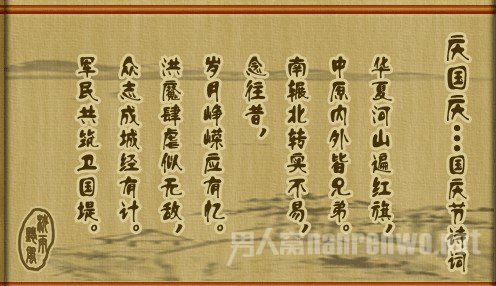 庆国庆…国庆节诗词
华夏河山遍红旗，
中原内外皆兄弟。
南辗北转实不易，
念往昔，
岁月峥嵘应有忆。
洪魔肆虐似无敌，
众志成城经有计。
军民共筑卫国堤。
男人窝nanrenwo.net